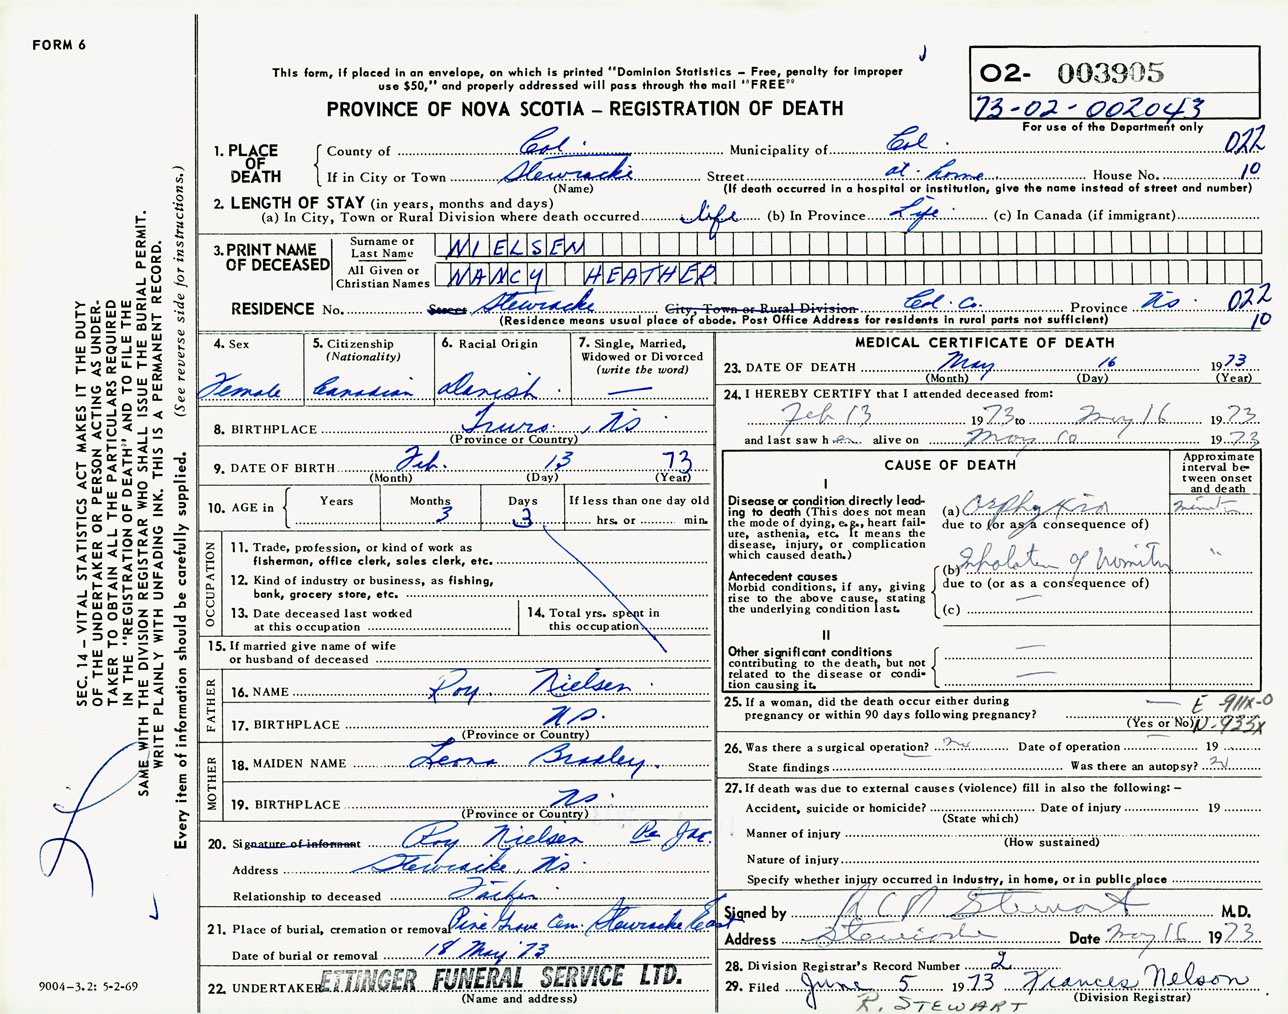 FORM 6
This form, if placed in an envelope, on which is printed "Dominion Statistics – Free, penalty for improper
use $50," and properly addressed will pass through the mail "FREE"
PROVINCE OF NOVA SCOTIA – REGISTRATION OF DEATH
02- 003905
73-02-002043
For use of the Department only
SEC. 14 – VITAL STATISTICS ACT MAKES IT THE DUTY
OF THE UNDERTAKER OR PERSON ACTING AS UNDER-
TAKER TO OBTAIN ALL THE PARTICULARS REQUIRED
IN THE "REGISTRATION OF DEATH" AND TO FILE THE
SAME WITH THE DIVISION REGISTRAR WHO SHALL ISSUE THE BURIAL PERMIT.
WRITE PLAINLY WITH UNFADING INK. THIS IS A PERMANENT RECORD.
Every item of information should be carefully supplied. (See reverse side for instructions.)
1. PLACE OF DEATH
County of Col. Municipality of Col. 022
If in City or Town Stewiacke Street at home House No. 10
(Name) (If death occurred in a hospital or institution, give the name instead of street and number)
2. LENGTH OF STAY (in years, months and days)
(a) In City, Town or Rural Division where death occurred life (b) In Province Life (c) In Canada (if immigrant)
3. PRINT NAME OF DECEASED
Surname or Last Name NIELSEN
All Given or Christian Names NANCY HEATHER
RESIDENCE No. Street Stewiacke City, Town or Rural Division Col. Co. Province NS 022
(Residence means usual place of abode. Post Office Address for residents in rural parts not sufficient) 10
4. Sex Female
5. Citizenship (Nationality) Canadian
6. Racial Origin Danish
7. Single, Married, Widowed or Divorced (write the word) —
8. BIRTHPLACE Truro, NS
(Province or Country)
9. DATE OF BIRTH Feb. 13 73
(Month) (Day) (Year)
10. AGE in Years Months 3 Days 3 If less than one day old hrs. or min.
OCCUPATION
11. Trade, profession, or kind of work as
fisherman, office clerk, sales clerk, etc.
12. Kind of industry or business, as fishing,
bank, grocery store, etc.
13. Date deceased last worked
at this occupation
14. Total yrs. spent in
this occupation
15. If married give name of wife
or husband of deceased
FATHER
16. NAME Roy Nielsen
17. BIRTHPLACE NS.
(Province or Country)
MOTHER
18. MAIDEN NAME Leona Bradley
19. BIRTHPLACE NS.
(Province or Country)
20. Signature of informant Roy Nielsen Per
Address Stewiacke, NS
Relationship to deceased Father
21. Place of burial, cremation or removal Pine Grove Cem. Stewiacke East
Date of burial or removal 18 May '73
22. UNDERTAKER ETTINGER FUNERAL SERVICE LTD.
(Name and address)
MEDICAL CERTIFICATE OF DEATH
23. DATE OF DEATH May 16 1973
(Month) (Day) (Year)
24. I HEREBY CERTIFY that I attended deceased from:
Feb 13 1973 to May 16 1973
and last saw her alive on May 1973
CAUSE OF DEATH
Approximate interval between onset and death
I
Disease or condition directly lead-
ing to death (This does not mean
the mode of dying, e.g., heart fail-
ure, asthenia, etc. It means the
disease, injury, or complication
which caused death.)
(a) Asphyxia minutes
due to (or as a consequence of)
(b) Inhalation of vomitus "
due to (or as a consequence of)
Antecedent causes
Morbid conditions, if any, giving
rise to the above cause, stating
the underlying condition last.
(c) —
II
Other significant conditions
contributing to the death, but not
related to the disease or condi-
tion causing it.
— —
25. If a woman, did the death occur either during
pregnancy or within 90 days following pregnancy? —
(Yes or No)
E-911X-0
N-933X
26. Was there a surgical operation? no Date of operation — 19
State findings Was there an autopsy? no
27. If death was due to external causes (violence) fill in also the following: –
Accident, suicide or homicide? Date of injury 19
(State which)
Manner of injury
(How sustained)
Nature of injury
Specify whether injury occurred in industry, in home, or in public place
Signed by Stewart M.D.
Address Stewiacke Date May 16 1973
28. Division Registrar's Record Number 2
29. Filed June 5 1973 Frances Nelson
(Division Registrar)
R. STEWART
9004-3.2: 5-2-69